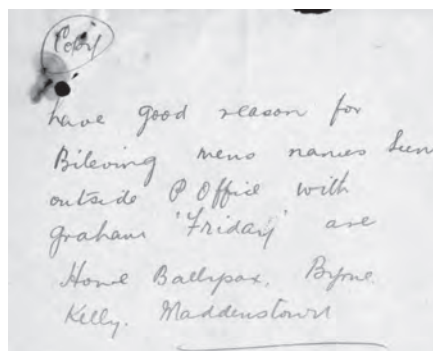 Copy
have good reason for
Bileving mens names Seen
outside P Office with
graham 'Friday' are
Howe Ballysax, Byrne
Kelly. Maddenstown